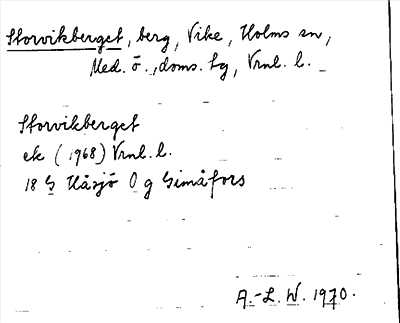 Storvikberget, berg, Vike, Holms sn,
Med. ö., doms. tg, Vrnl. l.
Storvikberget
ek (1968) Vrnl. l.
18 G Håsjö O g Gimåfors
A.-L. W. 1970.